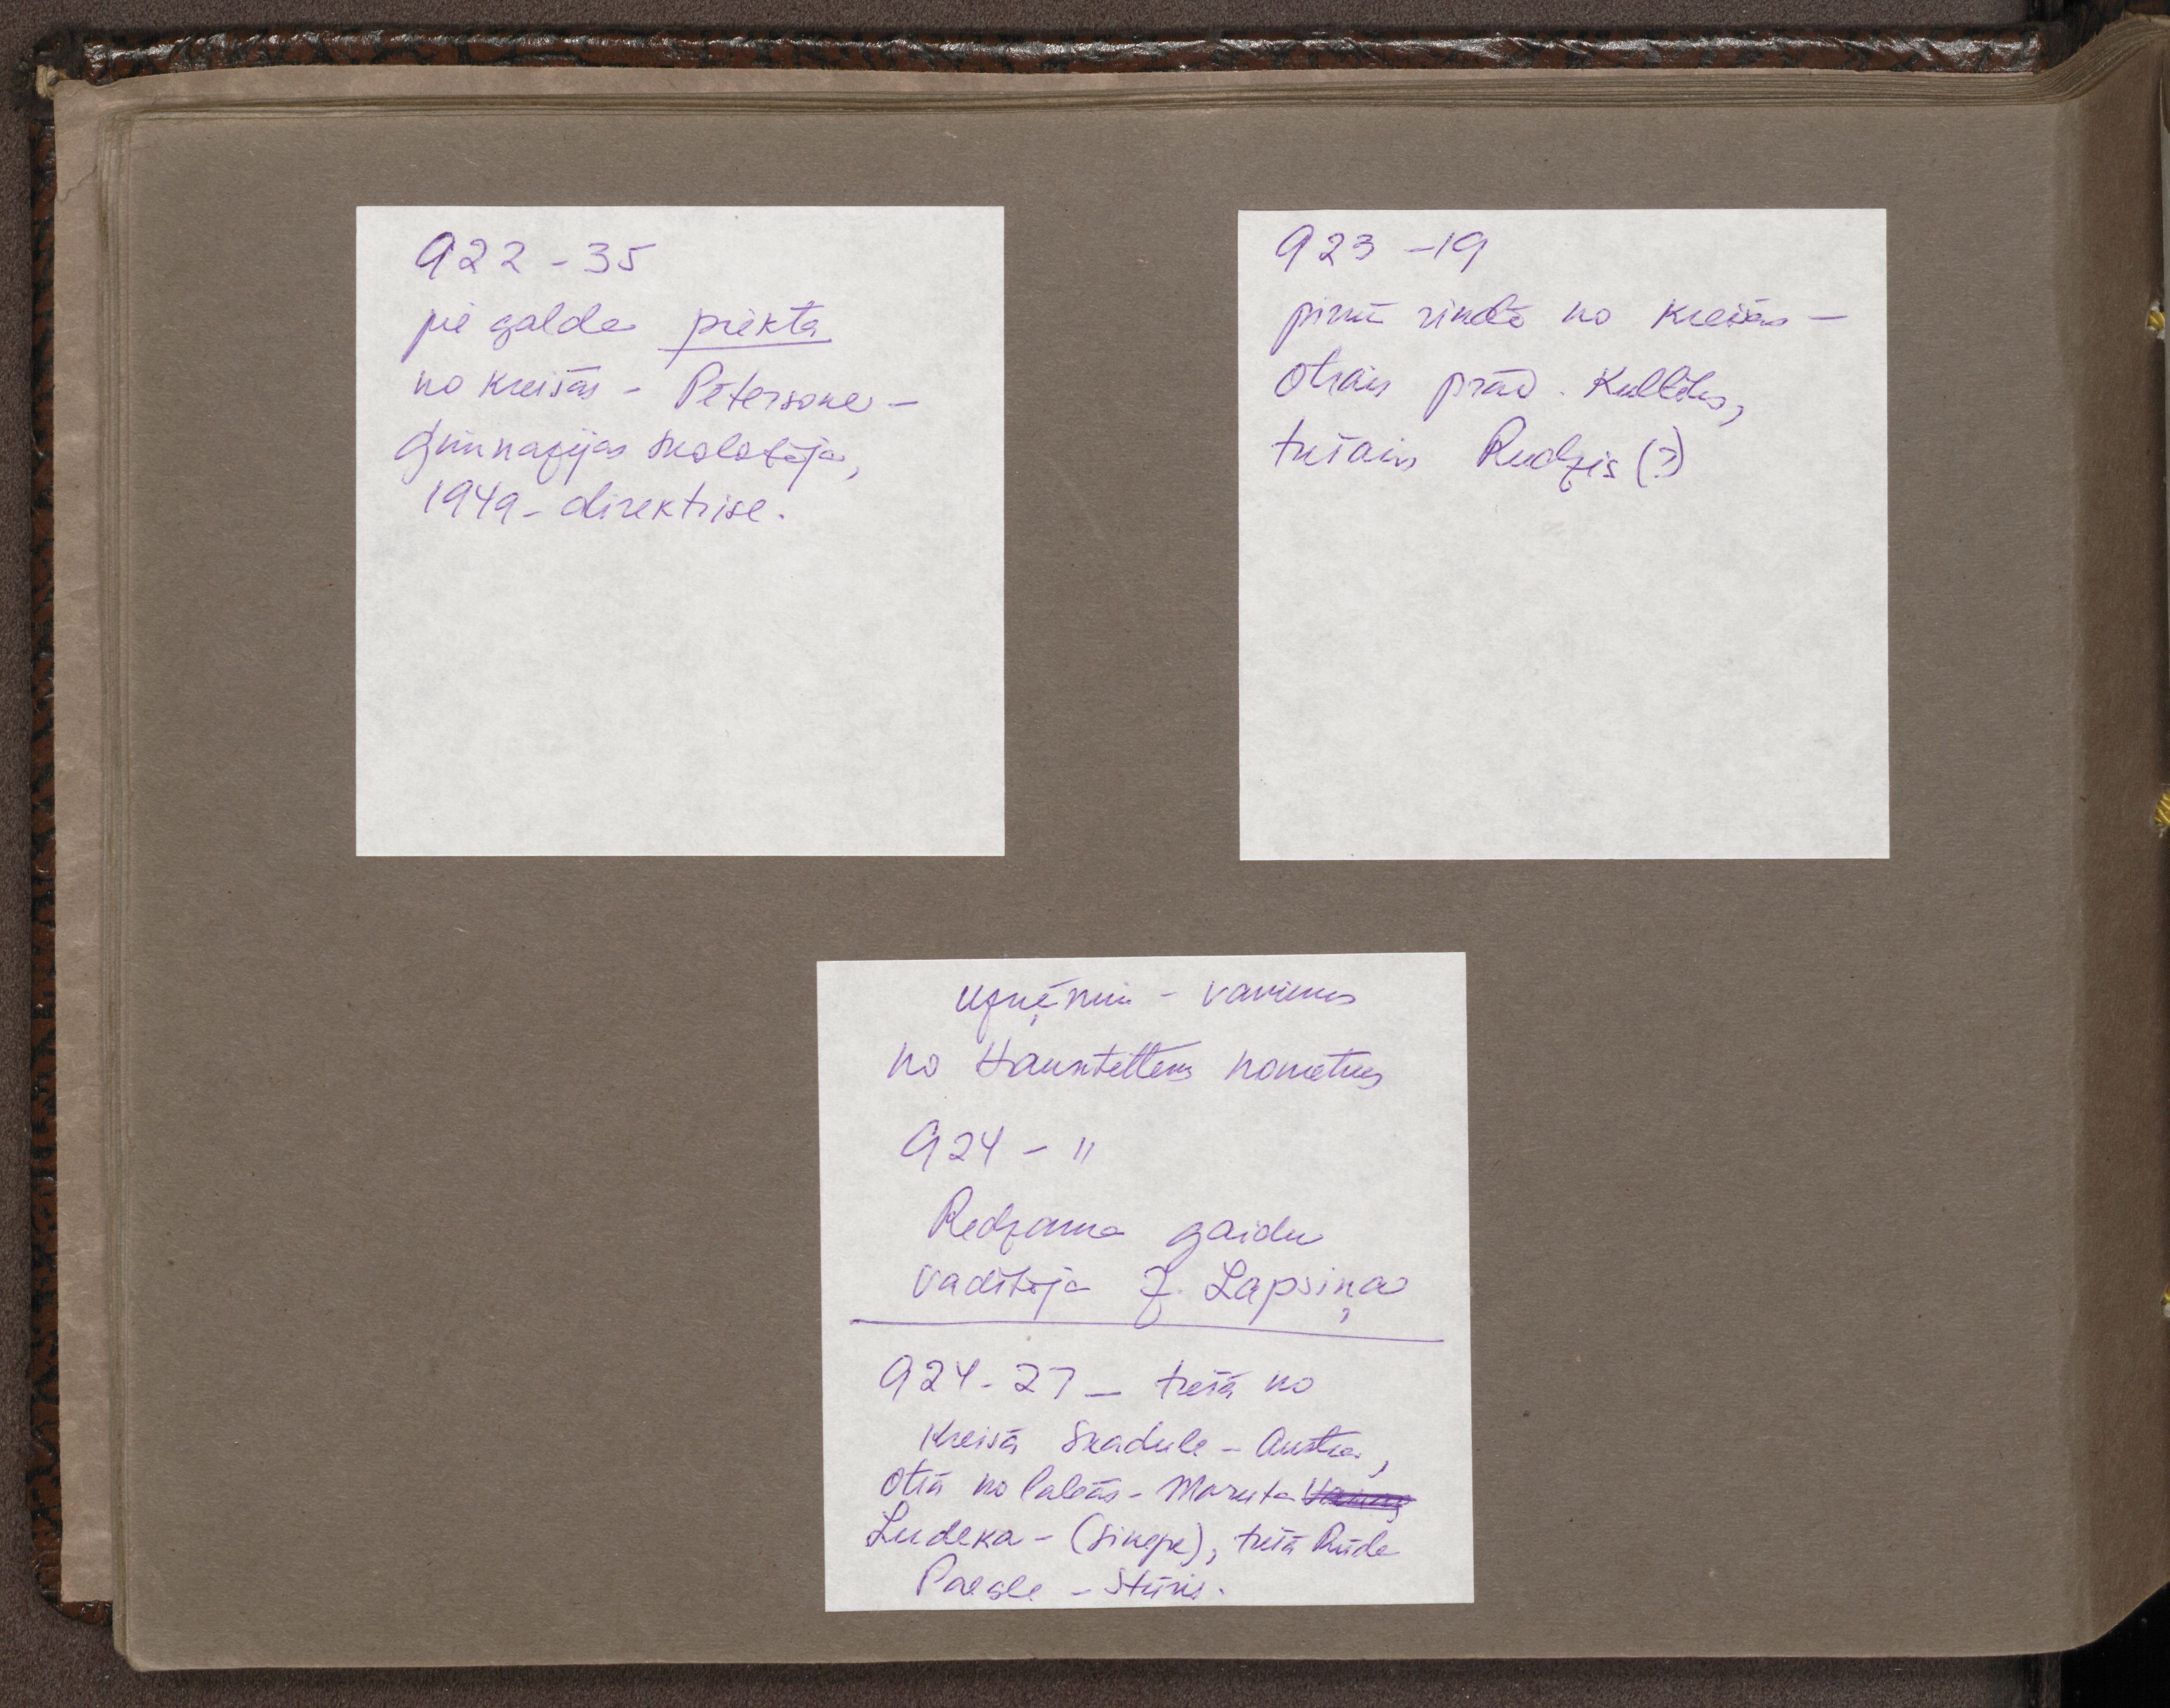 922 - 35
pie galda piektā
no kreisās - Pētersone -
ģimnazijas skolotāja,
1949 - direktrise.
923 - 19
pirmā rindā no kreisās -
otrais prāv. Kullītis,
trešais Rudzis (?)
uzņēmu - vanimus
no Haunstettens nometnes
924 - "
Redzama gaidu
vadītāja Z. Lapsiņa
924 - 27 - trešā no
kreisā Skadule - Austra,
otrā no labās - Maruta
Ludeka - (Sinepe), trešā Rūda
Paegle - Stūris.